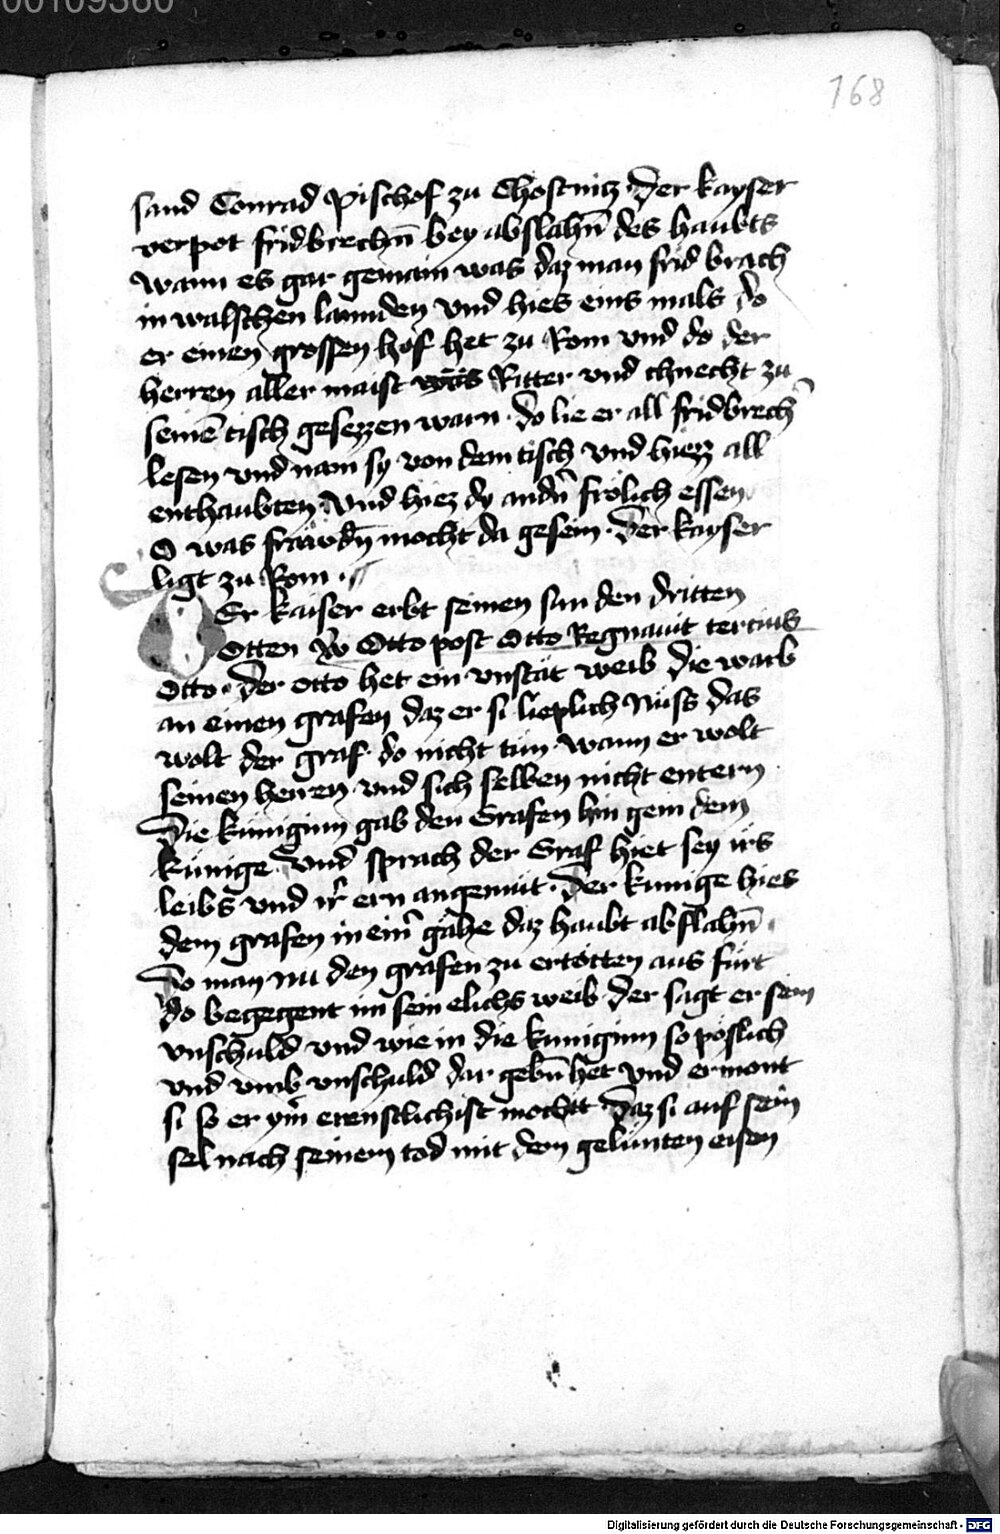 00109380
168
sand Conrad Pischof zu Chostnicz der kayser
verpot fridbrechn̄ bey abslahn̄ des haubts
wann es gar gemain was daz man frid brach
in walschen lannden vnd hies eins mals do
er einen grossen hof het zu Rom vnd do der
herren aller maist was Ritter vnd chnecht zu
seinē tisch gesezzen warn · do lie er all fridbrech̄
lesen vnd nam sy von dem tisch vnd hiezz all
enthaubten vnd hiez dy andn̄ frölich essen
O was fräwdn̄ mocht da gesein · der kayser
ligt zu Rom ·
Er kaiser erbt seinen sun den dritten
Otten Otto post Otto Regnauit tercius
Otto · der otto het ein vnstät weib die warb
an einen grafen daz er si lieplich Nüss das
wolt der graf do nicht tün wann er wolt
seinen herren vnd sich selben nicht entern
die küniginn gab den Grafen hin gein dem
künige vnd sprach der Graf hiet sey irs
leibs vnd ir̄ ern angemüt · der kunige hies
dem grafen in ein̄ gähe daz haubt abslahn̄ ·
Do man nu den grafen zu ertötten aus fürt
do begegent im sein elichs weib der sagt er sein
vnschuld vnd wie in die kuniginn so pöslich
vnd vmb vnschuld dar gebn̄ het vnd ermont
si so er ym̄ erenstlichist mochtt daz si auf sein
sel nach seinem tod mit dem gelünten eisen
Digitalisierung gefördert durch die Deutsche Forschungsgemeinschaft - DFG